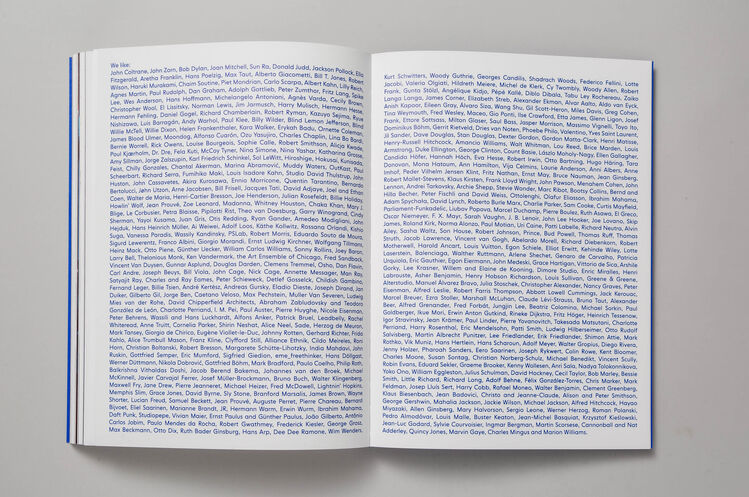 We like:
John Coltrane, John Zorn, Bob Dylan, Joan Mitchell, Sun Ra, Donald Judd, Jackson Pollock, Ella
Fitzgerald, Aretha Franklin, Hans Poelzig, Max Taut, Alberto Giacometti, Bill T. Jones, Robert
Wilson, Haruki Murakami, Chaim Soutine, Piet Mondrian, Carlo Scarpa, Albert Kahn, Lilly Reich,
Agnes Martin, Paul Rudolph, Dan Graham, Adolph Gottlieb, Peter Zumthor, Fritz Lang, Spike
Lee, Wes Anderson, Hans Hoffmann, Michelangelo Antonioni, Agnès Varda, Cecily Brown,
Christopher Wool, El Lissitzky, Norman Lewis, Jim Jarmusch, Harry Mulisch, Hermann Henselmann,
Hermann Fehling, Daniel Gogel, Richard Chamberlain, Robert Ryman, Kazuyo Sejima, Ryue
Nishizawa, Luis Barragán, Andy Warhol, Paul Klee, Billy Wilder, Blind Lemon Jefferson, Blind
Willie McTell, Willie Dixon, Helen Frankenthaler, Kara Walker, Erykah Badu, Ornette Coleman,
James Blood Ulmer, Moondog, Alfonso Cuarón, Ozu Yasujiro, Charles Chaplin, Lina Bo Bardi,
Bernie Worrell, Rick Owens, Louise Bourgeois, Sophie Calle, Robert Smithson, Alicia Keys,
Paul Kjærholm, Dr. Dre, Fela Kuti, McCoy Tyner, Nina Simone, Nina Yashar, Katharina Grosse,
Amy Sillman, Jorge Zalszupin, Karl Friedrich Schinkel, Sol LeWitt, Hiroshige, Hokusai, Kunisada,
Feist, Chilly Gonzales, Chantal Akerman, Marina Abramović, Muddy Waters, OutKast, Paul
Scheerbart, Richard Serra, Fumihiko Maki, Louis Isadore Kahn, Studio David Thulstrup, John
Huston, John Cassavetes, Akira Kurosawa, Ennio Morricone, Quentin Tarantino, Bernardo
Bertolucci, Jørn Utzon, Arne Jacobsen, Bill Frisell, Jacques Tati, David Adjaye, Joel and Ethan
Coen, Walter de Maria, Henri-Cartier Bresson, Joe Henderson, Julian Rosefeldt, Billie Holiday,
Howlin' Wolf, James Brown, Zoe Leonard, Madonna, Whitney Houston, Chaka Khan, Mary J.
Blige, Le Corbusier, Petra Blaisse, Pipilotti Rist, Theo van Doesburg, Garry Winogrand, Cindy
Sherman, Yayoi Kusama, Juan Gris, Otis Redding, Ryan Gander, Amedeo Modigliani, John
Hejduk, Hans Heinrich Müller, Ai Weiwei, Adolf Loos, Käthe Kollwitz, Rossana Orlandi, Kishio
Suga, Vanessa Paradis, Wassily Kandinsky, PSLab, Robert Morris, Eduardo Souto de Moura,
Sigurd Lewerentz, Franco Albini, Giorgio Morandi, Ernst Ludwig Kirchner, Wolfgang Tillmans,
Heinz Mack, Otto Piene, Günther Uecker, William Carlos Williams, Sonny Rollins, Joey Baron,
Larry Bell, Thelonious Monk, Ken Vandermark, the Art Ensemble of Chicago, Fred Sandback,
Vincent Van Duysen, Gunnar Asplund, Douglas Darden, Clemens Tremmel, Osho, Dan Flavin,
Carl Andre, Joseph Beuys, Bill Viola, John Cage, Nick Cage, Annette Messager, Man Ray,
Satyajit Ray, Charles and Ray Eames, Peter Schieweck, Detlef Gosselck, Childish Gambino,
Fernand Léger, Billie Toen, André Kertész, Andreas Gursky, Eladio Dieste, Joseph Dirand, Jan
Duiker, Gilberto Gil, Jorge Ben, Caetano Veloso, Max Pechstein, Muller Van Severen, Ludwig
Mies van der Rohe, David Chipperfield Architects, Abraham Zabludovsky and Teodoro
González de León, Charlotte Perriand, I. M. Pei, Paul Auster, Pierre Huyghe, Nicole Eisenman,
Peter Behrens, Wassili and Hans Luckhardt, Alfons Anker, Patrick Bruel, Leadbelly, Rachel
Whiteread, Anne Truitt, Cornelia Parker, Shirin Neshat, Alice Neel, Sade, Herzog de Meuron,
Mark Tansey, Giorgio de Chirico, Eugène Viollet-le-Duc, Johnny Rotten, Gerhard Richter, Frida
Kahlo, Alice Trumbull Mason, Franz Kline, Clyfford Still, Alliance Ethnik, Cildo Meireles, Roni
Horn, Christian Boltanski, Robert Bresson, Margarete Schütte-Lihotzky, India Mahdavi, John
Ruskin, Gottfried Semper, Eric Mumford, Sigfried Giedion, eme_freethinker, Hans Döllgast,
Werner Düttmann, Nikola Dobrović, Gottfried Böhm, Mark Bradford, Paulo Coelho, Philip Roth,
Balkrishna Vithaldas Doshi, Jacob Berend Bakema, Johannes van den Broek, Michael
McKinnell, Javier Carvajal Ferrer, Josef Müller-Brockmann, Bruno Buch, Walter Klingenberg,
Maxwell Fry, Jane Drew, Pierre Jeanneret, Michael Heizer, Fred McDowell, Lightnin' Hopkins,
Memphis Slim, Grace Jones, David Byrne, Sly Stone, Branford Marsalis, James Brown, Wayne
Shorter, Lucian Freud, Samuel Beckett, Jean Prouvé, Auguste Perret, Pierre Chareau, Bernard
Bijvoet, Eliel Saarinen, Marianne Brandt, JR, Hermann Warm, Erwin Wurm, Ibrahim Mahama,
Daft Punk, Studiopepe, Vivian Maier, Ernst Paulus and Günther Paulus, João Gilberto, Antônio
Carlos Jobim, Paulo Mendes da Rocha, Robert Gwathmey, Frederick Kiesler, George Grosz,
Max Beckmann, Otto Dix, Ruth Bader Ginsburg, Hans Arp, Dee Dee Ramone, Wim Wenders,
Kurt Schwitters, Woody Guthrie, Georges Candilis, Shadrach Woods, Federico Fellini, Lotte
Jacobi, Valerio Olgiati, Hildreth Meiere, Michel de Klerk, Cy Twombly, Woody Allen, Robert
Frank, Gunta Stölzl, Angélique Kidjo, Pepé Kallé, Diblo Dibala, Tabu Ley Rochereau, Zaiko
Langa Langa, James Corner, Elizabeth Streb, Alexander Ekman, Alvar Aalto, Aldo van Eyck,
Anish Kapoor, Eileen Gray, Álvaro Siza, Wang Shu, Gil Scott-Heron, Miles Davis, Grant Green,
Tina Weymouth, Fred Wesley, Maceo, Gio Ponti, Ilse Crawford, Etta James, Glenn Ligon, Josef
Frank, Ettore Sottsass, Milton Glaser, Saul Bass, Jasper Morrison, Massimo Vignelli, Toyo Ito,
Dominikus Böhm, Gerrit Rietveld, Dries van Noten, Phoebe Philo, Valentino, Yves Saint Laurent,
Jil Sander, Dave Douglas, Stan Douglas, Dexter Gordon, Gordon Matta-Clark, Henri Matisse,
Henry-Russell Hitchcock, Amancio Williams, Walt Whitman, Lou Reed, Brice Marden, Louis
Armstrong, Duke Ellington, George Clinton, Count Basie, László Moholy-Nagy, Ellen Gallagher,
Candida Höfer, Hannah Höch, Eva Hesse, Robert Irwin, Otto Bartning, Hugo Häring, Tara
Donovan, Mona Hatoum, Ann Hamilton, Vija Celmins, Laurie Anderson, Anni Albers, Anne
Imhof, Peder Vilhelm Jensen Klint, Fritz Nathan, Ernst May, Bruce Nauman, Jean Ginsberg,
Robert Mallet-Stevens, Klaus Kirsten, Frank Lloyd Wright, John Pawson, Menahem Cohen, John
Lennon, Andrei Tarkovsky, Archie Shepp, Stevie Wonder, Marc Ribot, Bootsy Collins, Bernd and
Hilla Becher, Peter Fischli and David Weiss, Ottolenghi, Olafur Eliasson, Ibrahim Mahama,
Adam Spychała, David Lynch, Roberto Burle Marx, Charlie Parker, Sam Cooke, Curtis Mayfield,
Parliament-Funkadelic, Liubov Popova, Marcel Duchamp, Pierre Boulez, Ruth Asawa, El Greco,
Oscar Niemeyer, F. X. Mayr, Sarah Vaughn, J. B. Lenoir, John Lee Hooker, Joe Lovano, Skip
James, Roland Kirk, Norma Alonzo, Paul Motian, Uri Caine, Patti Labelle, Richard Neutra, Alvin
Ailey, Sasha Waltz, Son House, Robert Johnson, Prince, Bud Powell, Thomas Ruff, Thomas
Struth, Jacob Lawrence, Vincent van Gogh, Abelardo Morell, Richard Diebenkorn, Robert
Motherwell, Harold Ancart, Louis Vuitton, Egon Schiele, Elliot Erwitt, Kehinde Wiley, Lotte
Laserstein, Balenciaga, Walther Ruttmann, Arlene Shechet, Genaro de Carvalho, Patricia
Urquiola, Eric Gauthier, Egon Eiermann, John Medeski, Grace Hartigan, Vittorio de Sica, Arshile
Gorky, Lee Krasner, Willem and Elaine de Kooning, Dimore Studio, Enric Miralles, Henri
Labrouste, Asher Benjamin, Henry Hobson Richardson, Louis Sullivan, Greene & Greene,
Alterstudio, Manuel Álvarez Bravo, Julia Stoschek, Christopher Alexander, Nancy Graves, Peter
Eisenman, Alfred Leslie, Robert Farris Thompson, Abbott Lowell Cummings, Jack Kerouac,
Marcel Breuer, Ezra Stoller, Marshall McLuhan, Claude Lévi-Strauss, Bruno Taut, Alexander
Beer, Alfred Grenander, Fred Forbát, Jungjin Lee, Beatriz Colomina, Michael Sorkin, Paul
Goldberger, Ikue Mori, Erwin Anton Gutkind, Rineke Dijkstra, Fritz Höger, Heinrich Tessenow,
Igor Stravinsky, Jean Krämer, Paul Linder, Pierre Yovanovitch, Takesada Matsutani, Charlotte
Perriand, Harry Rosenthal, Eric Mendelsohn, Patti Smith, Ludwig Hilberseimer, Otto Rudolf
Salvisberg, Martin Albrecht Punitzer, Lee Friedlander, Erik Friedlander, Shimon Attie, Mark
Rothko, Vik Muniz, Hans Hertlein, Hans Scharoun, Adolf Meyer, Walter Gropius, Diego Rivera,
Jenny Holzer, Pharoah Sanders, Eero Saarinen, Joseph Rykwert, Colin Rowe, Kent Bloomer,
Charles Moore, Susan Sontag, Christian Norberg-Schulz, Michael Benedikt, Vincent Scully,
Robin Evans, Eduard Sekler, Graeme Brooker, Kenny Wollesen, Anri Sala, Nadya Tolokonnikova,
Yoko Ono, William Eggleston, Julius Schulman, David Hockney, Cecil Taylor, Bob Marley, Bessie
Smith, Little Richard, Richard Long, Adolf Behne, Félix González-Torres, Chris Marker, Mark
Feldman, Josep Lluís Sert, Harry Cobb, Rafael Moneo, Walter Benjamin, Clement Greenberg,
Klaus Biesenbach, Jean Badovici, Christo and Jeanne-Claude, Alison and Peter Smithson,
George Gershwin, Mahalia Jackson, Jackie Wilson, Michael Jackson, Alfred Hitchcock, Hayao
Miyazaki, Allen Ginsberg, Mary Halvorson, Sergio Leone, Werner Herzog, Roman Polanski,
Pedro Almodóvar, Louis Malle, Buster Keaton, Jean-Michel Basquiat, Krzysztof Kieślowski,
Jean-Luc Godard, Sylvie Courvoisier, Ingmar Bergman, Martin Scorsese, Cannonball and Nat
Adderley, Quincy Jones, Marvin Gaye, Charles Mingus and Marion Williams.